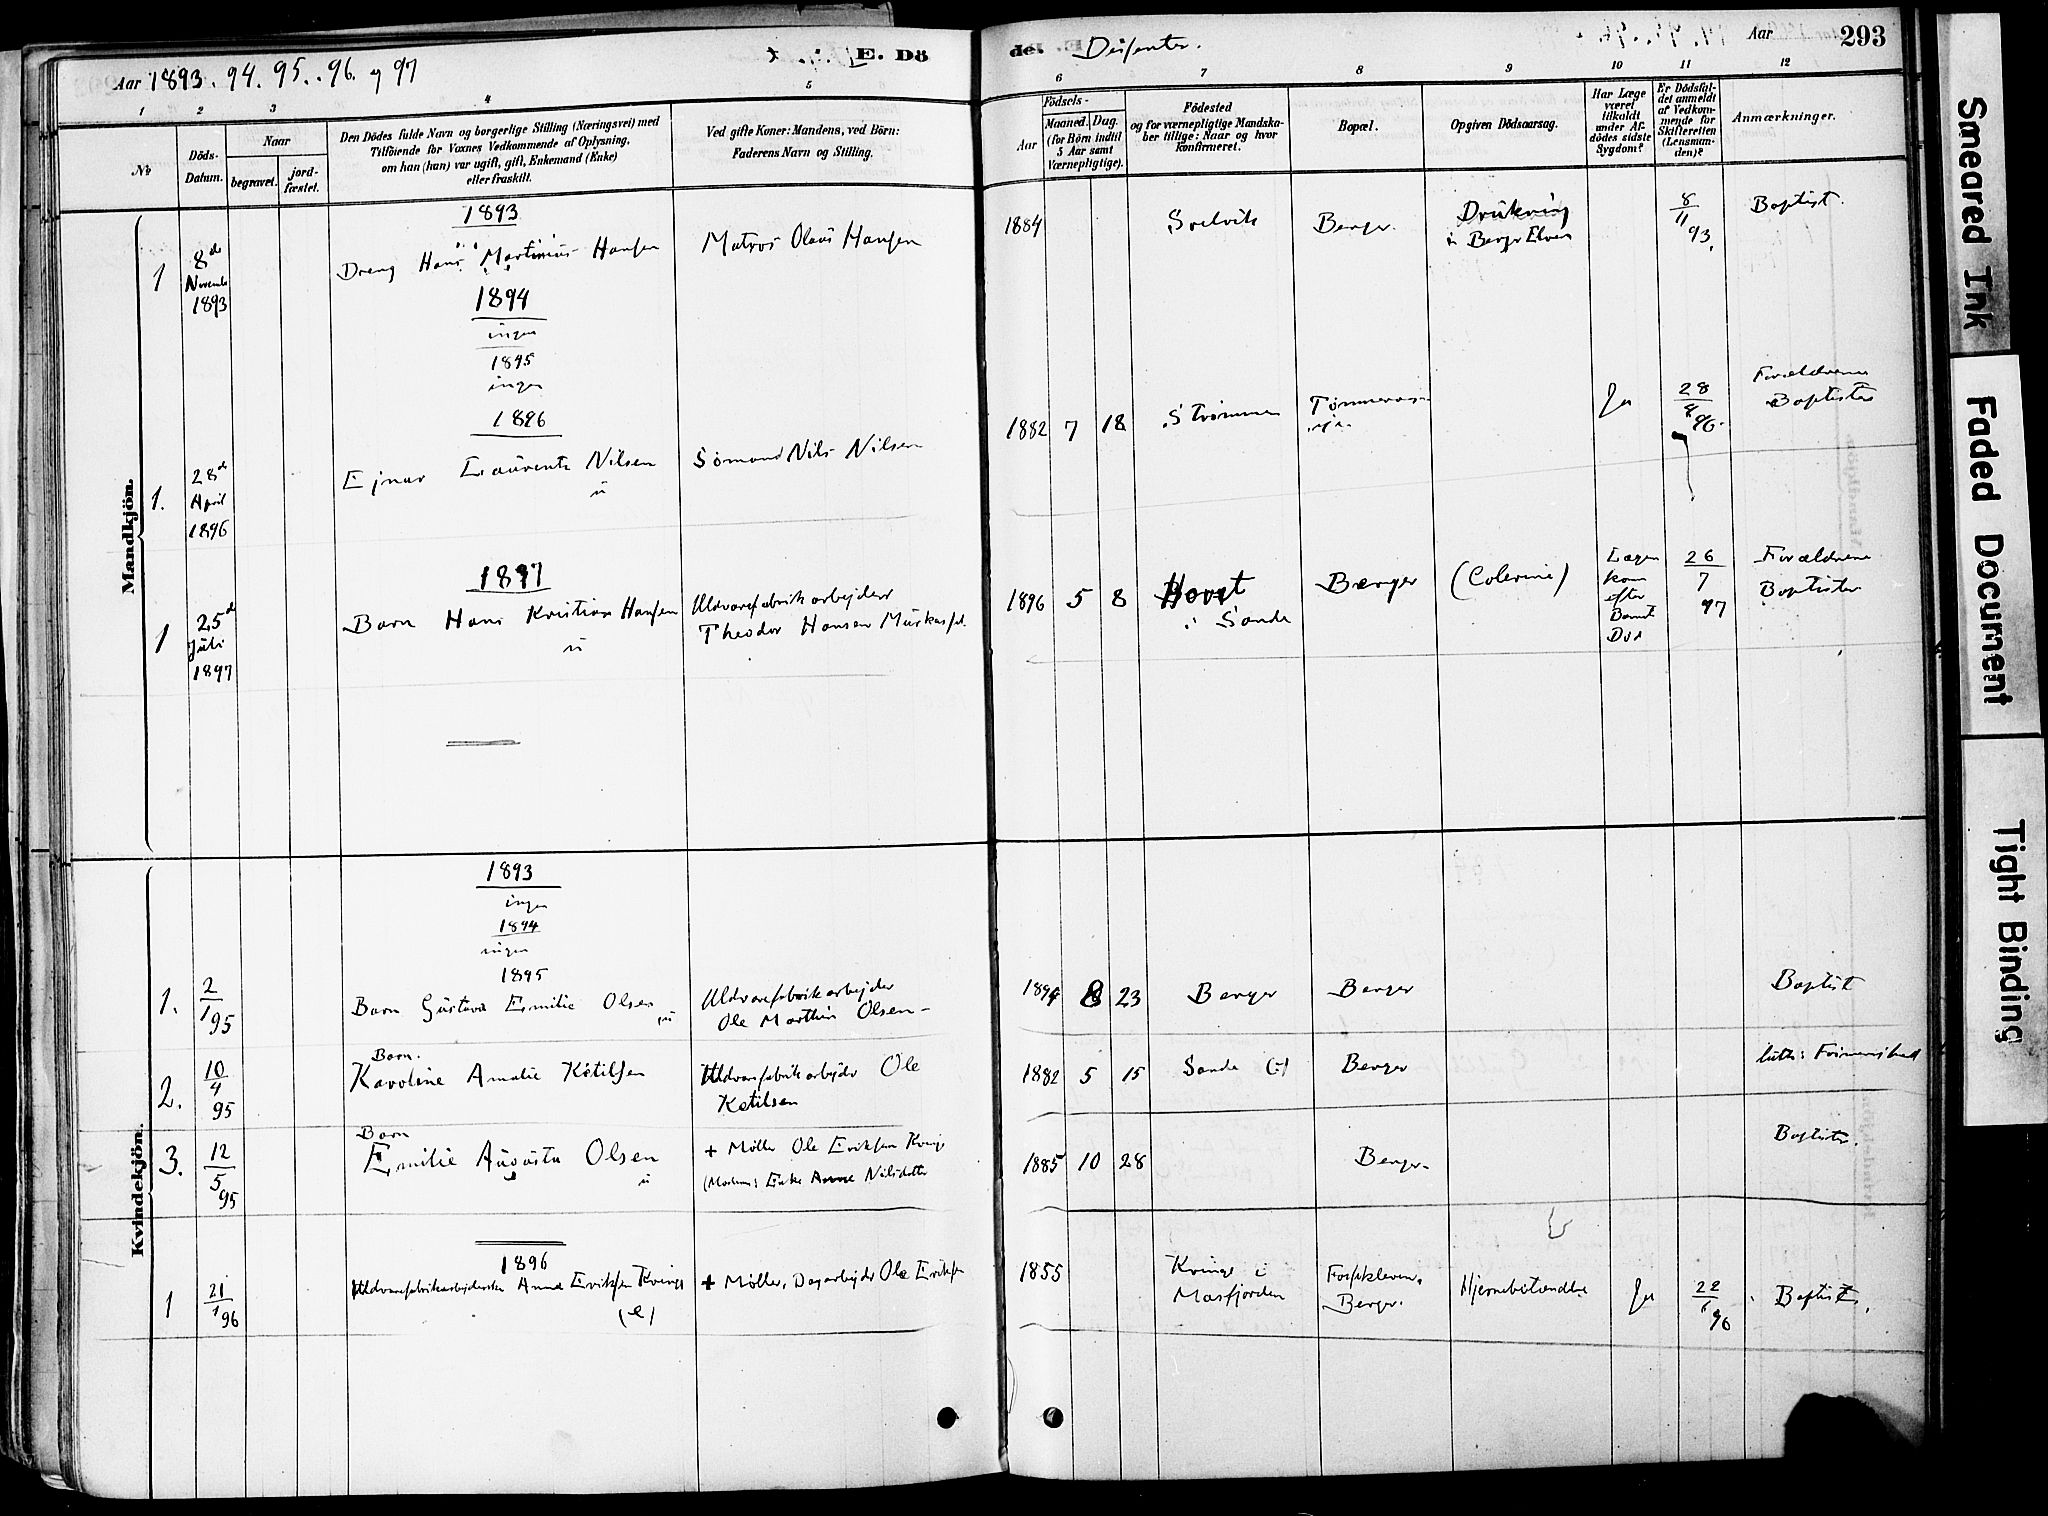 Aar 1893. 94. 95. 96. y 97
E. Dö
de. Disenter.
Aar
293
1 2 3 4 5
6 7 8 9 10 11 12
No
Döds-
Datum.
Naar
begravet.
jord-
fæstet.
Den Dödes fulde Navn og borgerlige Stilling (Næringsvei) med
Tilföiende for Voxnes Vedkommende af Oplysning,
om han (hun) var ugift, gift, Enkemand (Enke)
eller fraskilt.
Ved gifte Koner: Mandens, ved Börn:
Faderens Navn og Stilling.
Födsels-
Aar
Maaned. Dag.
(for Börn indtil
5 Aar samt
Værnepligtige).
Födested
og for værnepligtige Mandska-
ber tillige: Naar og hvor
konfirmeret.
Bopæl.
Opgiven Dödsaarsag.
Har Læge
været
tilkaldt
under Af-
dödes sidste
Sygdom?
Er Dödsfal-
det anmeldt
af Vedkom-
mende for
Skifteretten
(Lensman-
den)?
Anmærkninger.
Mandkjön.
1893
1
8de
November
1893
Dreng Hans Martinius Hansen
Matros Olaus Hansen
1884
Svelvik
Berger
Drukning
i Berger Elven
8/11 93.
Baptist.
1894
ingen
1895
ingen
1896
1.
28de
April
1896
Ejnar Laurentz Nilsen
u
Sömand Nils Nilsen
1882 7 18
Strömmen
Ja
28/4 96.
Forældrene
Baptister
1897
1
25de
Juli
1897
Barn Hans Kristian Hansen
u
Uldvarefabrikarbejder
Theodor Hansen
1896 5 8
Hovet
i Sande
Berger
(Colerine)
Lægen
kom
efter
Barnets
Död
26/7 97
Forældrene
Baptister
Kvindekjön.
1893
ingen
1894
ingen
1895
1.
2/1 95
Barn Gustava Emilie Olsen
u
Uldvarefabrikarbejder
Ole Marthin Olsen
1894 8 23
Berger
Berger
Baptist
2.
10/4 95
Barn.
Karoline Amalie Ketilsen
Uldvarefabrikarbejder Ole
Ketilsen
1882 5 15
Sande
Berger
luth: Frimenighed
3.
12/5 95
Barn
Emilie Augusta Olsen
u
+ Möller Ole Eriksen Kvinge
(Moderen: Enke Anne Nilsdatter
1885 10 28
Berger
Baptister.
1896
1
21/1 96
Uldvarefabrikarbejderske Anne Eriksen Kvinge
(e)
+ Möller, Dagarbejder Ole Eriksen
1855
Kvinge i
Masfjorden
Fossekleven,
Berger.
Hjernebetændelse
Ja
22/1 96
Baptist.
Smeared Ink
Faded Document
Tight Binding